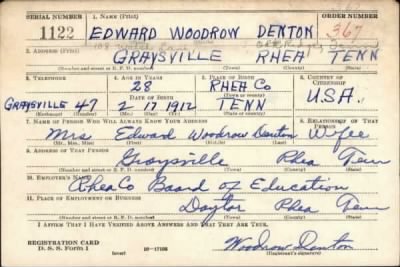 SERIAL NUMBER 1. NAME (Print) ORDER NUMBER
1122 EDWARD WOODROW DENTON 367
(First) (Middle) (Last)
2. ADDRESS (Print)
GRAYSVILLE RHEA TENN
(Number and street or R. F. D. number) (Town) (County) (State)
3. TELEPHONE 4. AGE IN YEARS 5. PLACE OF BIRTH 6. COUNTRY OF CITIZENSHIP
28 RHEA CO
DATE OF BIRTH (Town or county)
GRAYSVILLE 47 2-17-1912 TENN U.S.A.
(Exchange) (Number) (Mo.) (Day) (Yr.) (State or country)
7. NAME OF PERSON WHO WILL ALWAYS KNOW YOUR ADDRESS 8. RELATIONSHIP OF THAT PERSON
Mrs Edward Woodrow Denton Wifee
(Mr., Mrs., Miss) (First) (Middle) (Last)
9. ADDRESS OF THAT PERSON
Graysville Rhea Tenn
(Number and street or R. F. D. number) (Town) (County) (State)
10. EMPLOYER'S NAME
Rhea Co Board of Education
11. PLACE OF EMPLOYMENT OR BUSINESS
Dayton Rhea Tenn
(Number and street or R. F. D. number) (Town) (County) (State)
I AFFIRM THAT I HAVE VERIFIED ABOVE ANSWERS AND THAT THEY ARE TRUE.
REGISTRATION CARD
D. S. S. Form 1 (over) 16-17105 Woodrow Denton
(Registrant's signature)